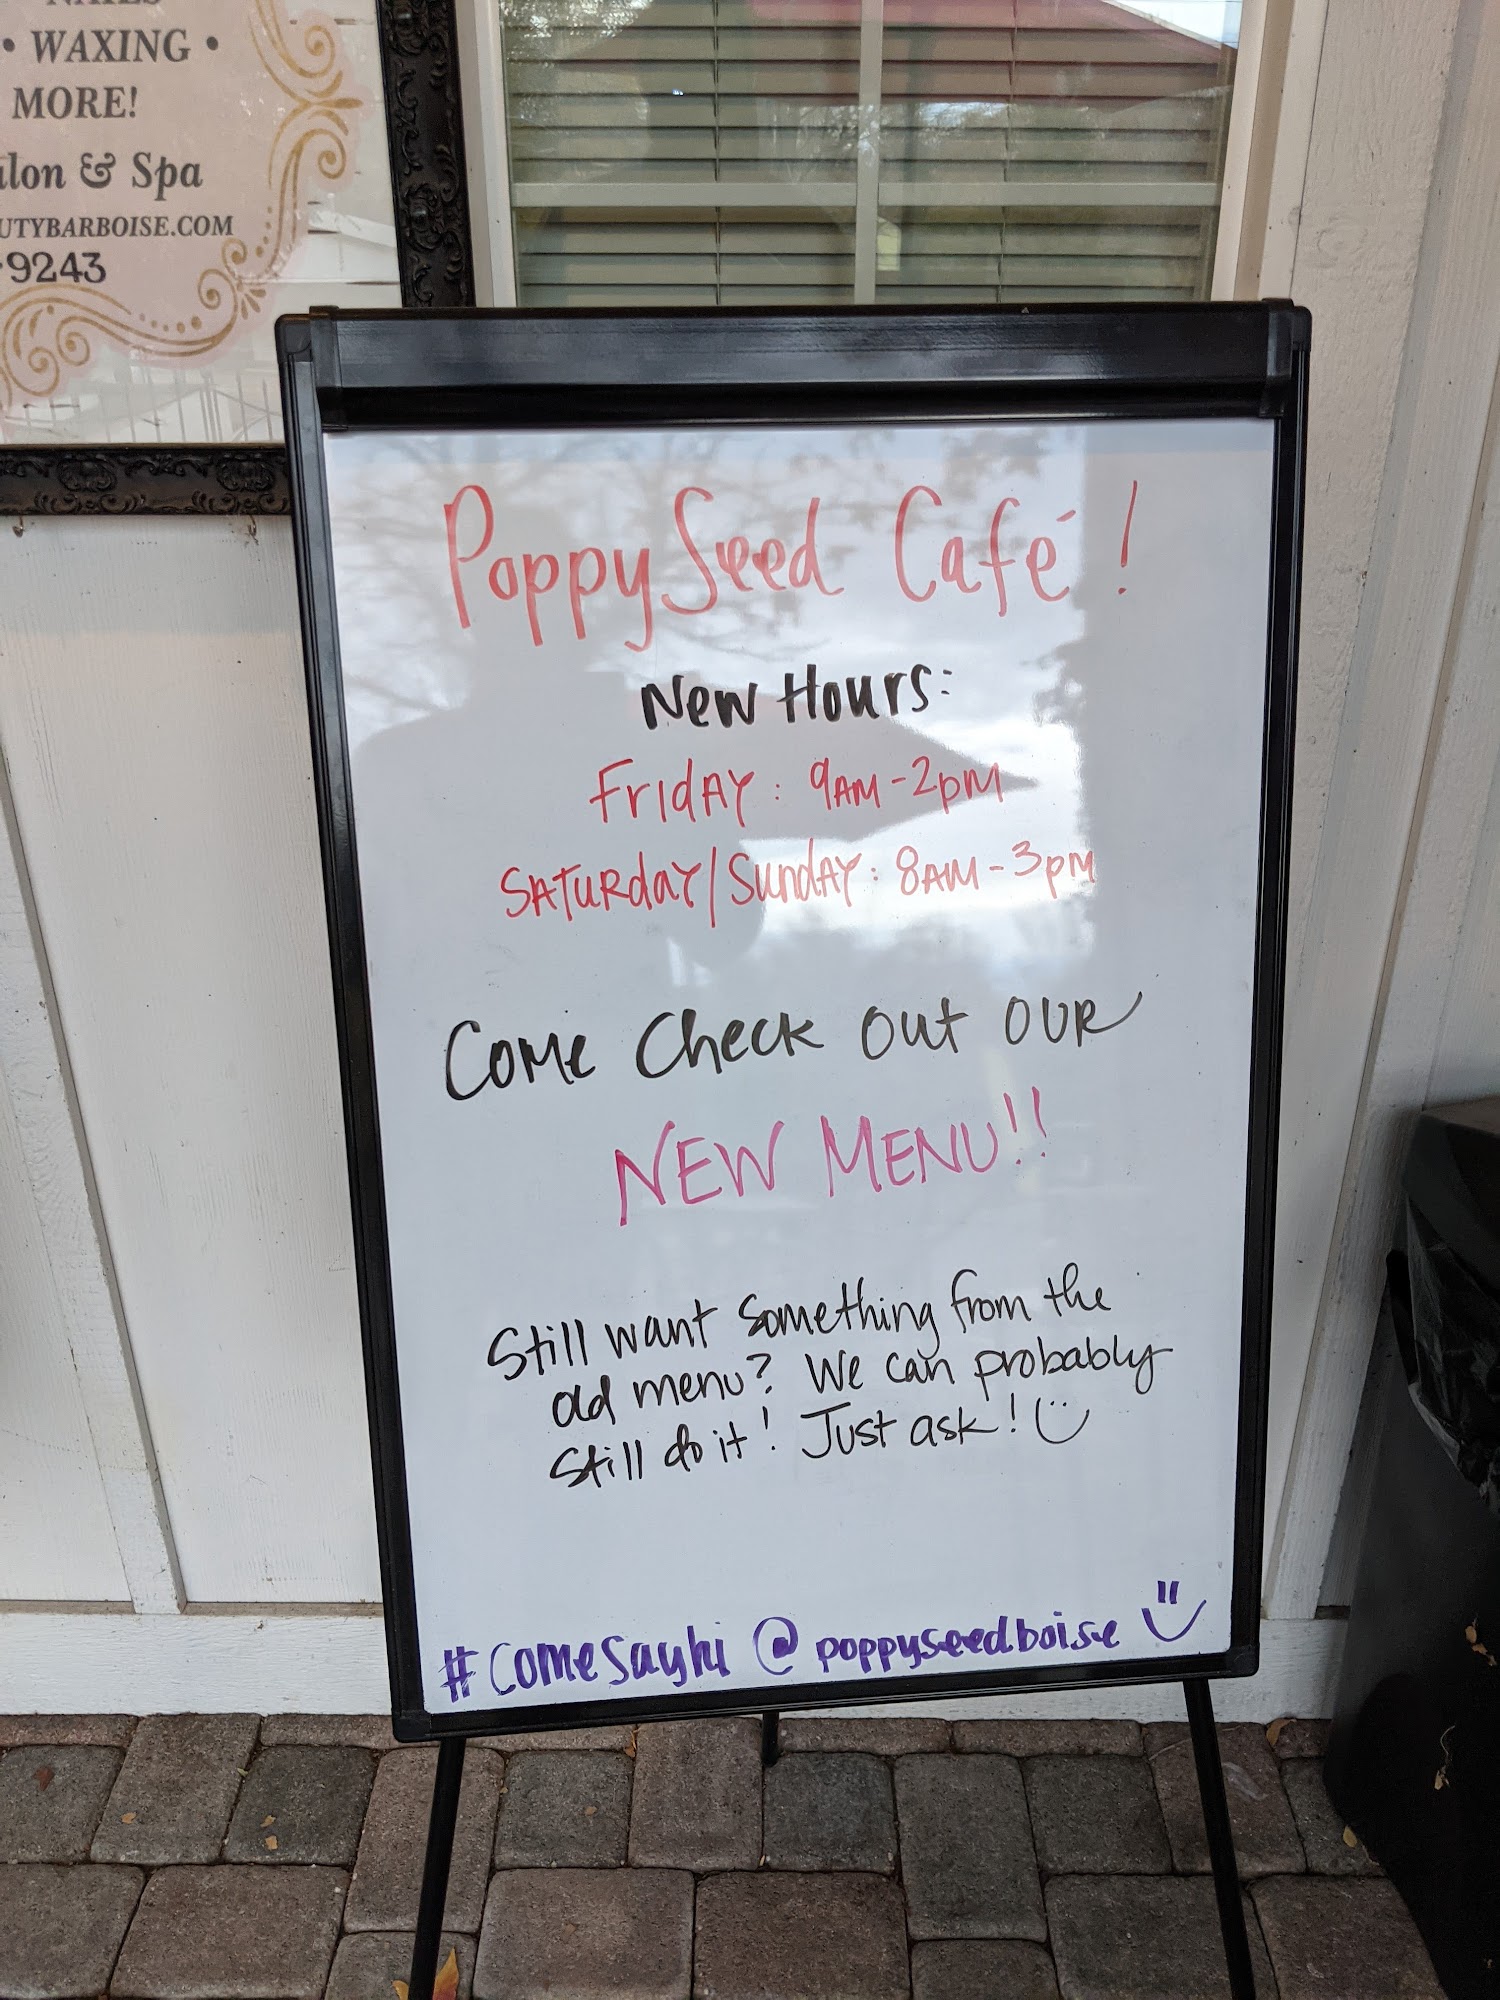 • WAXING •
MORE!
& Spa
9243
PoppySeed Café!
New Hours:
Friday: 9AM-2pM
Saturday/Sunday: 8AM-3pM
Come Check Out OUR
NEW MENU!!
Still want something from the
old menu? We can probably
still do it! Just ask!
#comesayhi @poppyseedboise